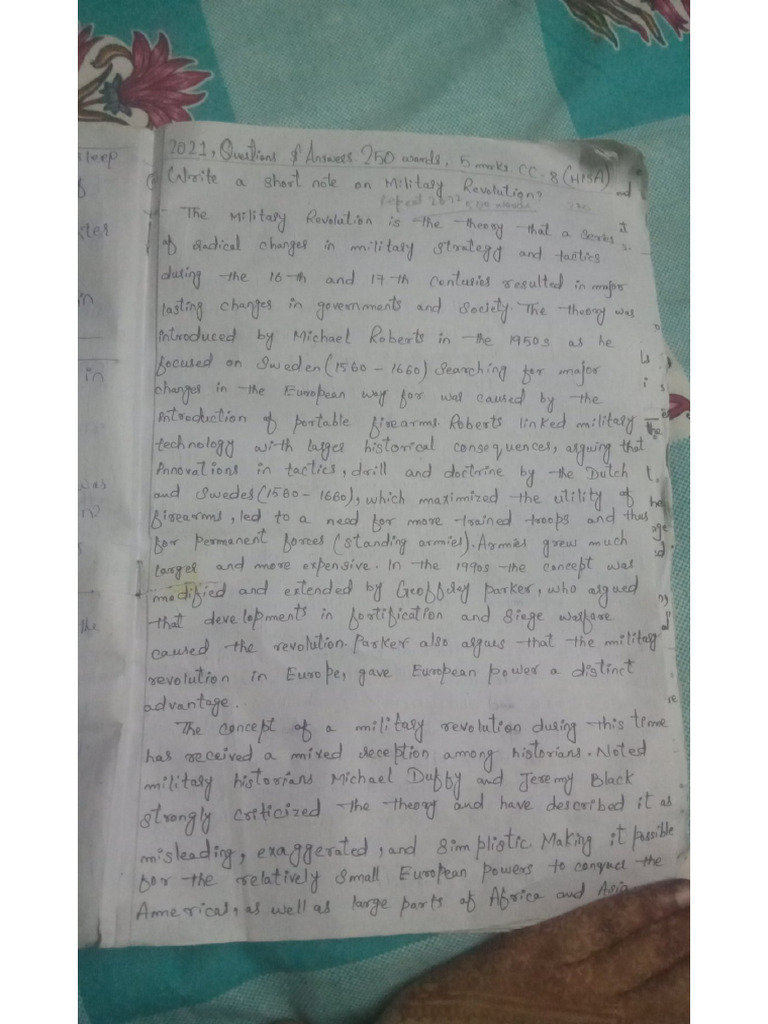 2021, Questions & Answers. 250 words, 5 marks. CC-8 (HISA)
Write a short note on Military Revolution?
repeat 2022 500 words
The Military Revolution is the theory that a series
of radical changes in military strategy and tactics
during the 16th and 17th centuries resulted in major
lasting changes in governments and society. The theory was
introduced by Michael Roberts in the 1950s as he
focused on Sweden (1560 - 1660) searching for major
changes in the European way for was caused by the
introduction of portable firearms. Roberts linked military
technology with larger historical consequences, arguing that
innovations in tactics, drill and doctrine by the Dutch
and Swedes (1560 - 1660), which maximized the utility of
firearms, led to a need for more trained troops and thus
for permanent forces (standing armies). Armies grew much
larger and more expensive. In the 1990s the concept was
modified and extended by Geoffrey parker, who argued
that developments in fortification and siege warfare
caused the revolution. Parker also argues that the military
revolution in Europe, gave European power a distinct
advantage.
The concept of a military revolution during this time
has received a mixed reception among historians. Noted
military historians Michael Duffy and Jeremy Black
strongly criticized the theory and have described it as
misleading, exaggerated, and simplistic. Making it possible
for the relatively small European powers to conquer the
Americas, as well as large parts of Africa and Asia
sleep
in
in
was
the